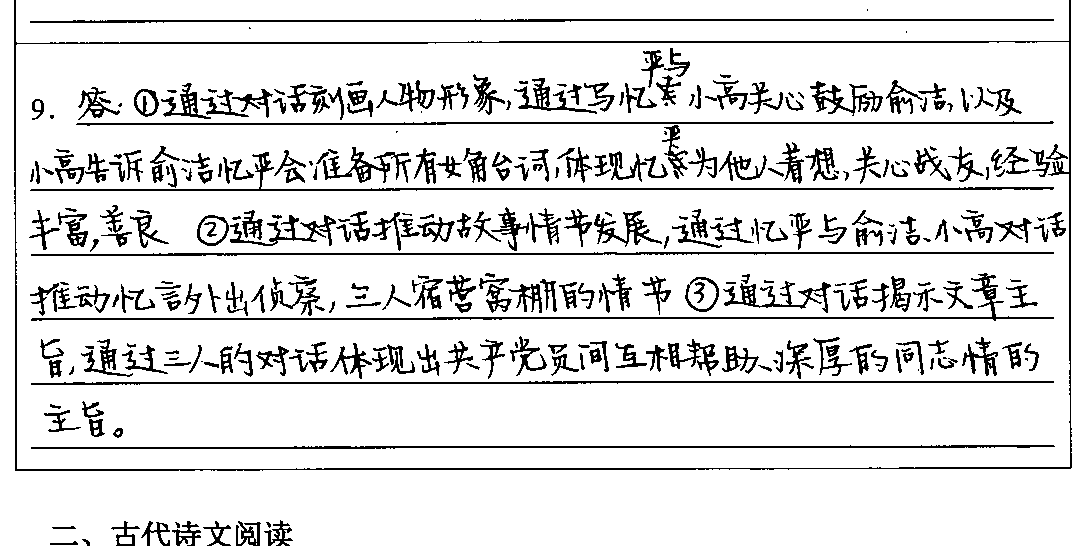 9. 答:①通过对话刻画人物形象,通过写忆严与小高关心鼓励俞洁,以及
小高告诉俞洁忆严会准备所有女角台词,体现忆严为他人着想,关心战友,经验
丰富,善良 ②通过对话推动故事情节发展,通过忆严与俞洁、小高对话
推动忆言外出侦察,三人宿营窝棚的情节 ③通过对话揭示文章主
旨,通过三人的对话体现出共产党员间互相帮助、深厚的同志情的
主旨。
二、古代诗文阅读